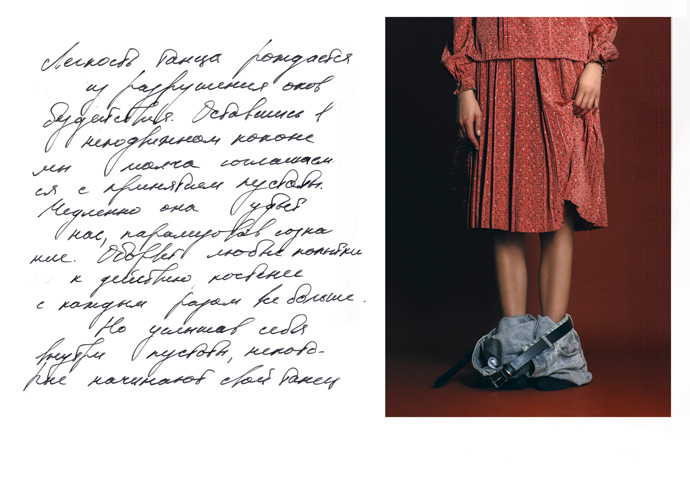 Легкость танца рождается
из разрушения оков
бездействия. Оставшись в
неподвижном коконе
мы молча соглашаем
ся с принятием пустоты.
Медленно она убьет
нас, парализовав созна
ние. Оборвет любые попытки
к действию, костенее
с каждым разом все больше.
Но услышав себя
внутри пустоты, некото-
рые начинают свой танец